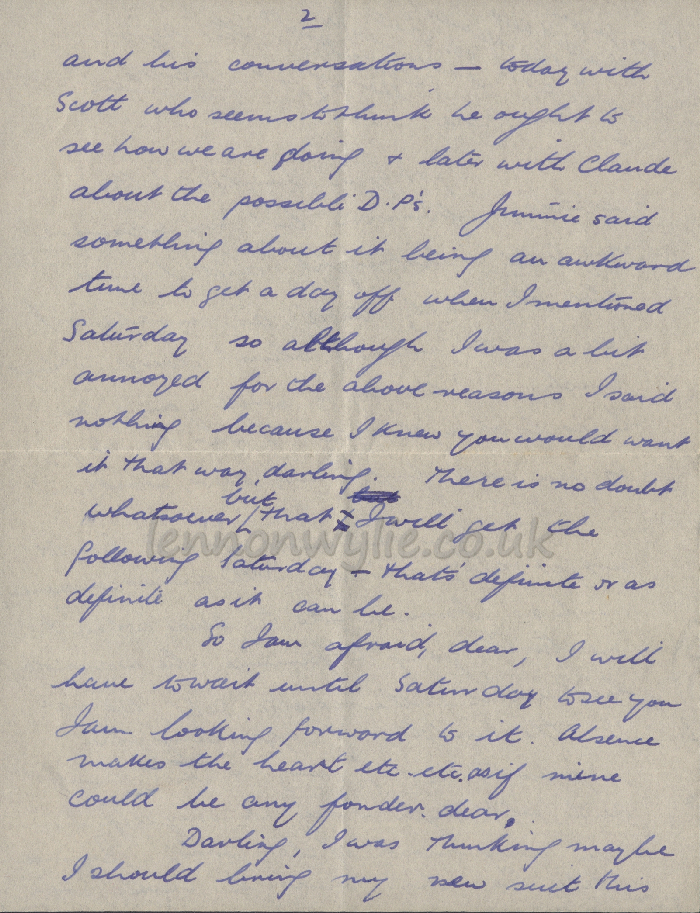 2
and his conversations — today with
Scott who seems to think he ought to
see how we are doing + later with Claude
about the possible D.P's. Jimmie said
something about it being an awkward
time to get a day off when I mentioned
Saturday so although I was a bit
annoyed for the above reasons I said
nothing because I knew you would want
it that way, darling. There is no doubt
whatsoever but that I will get the
lennonwylie.co.uk
following Saturday — that's definite or as
definite as it can be.
So I am afraid, dear, I will
have to wait until Saturday to see you
I am looking forward to it. Absence
makes the heart etc. etc. as if mine
could be any fonder. dear.
Darling, I was thinking maybe
I should bring my new suit this